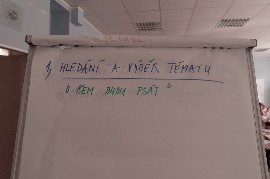 1, HLEDÁNÍ A VÝBĚR TÉMATU
O KOM BUDU PSÁT